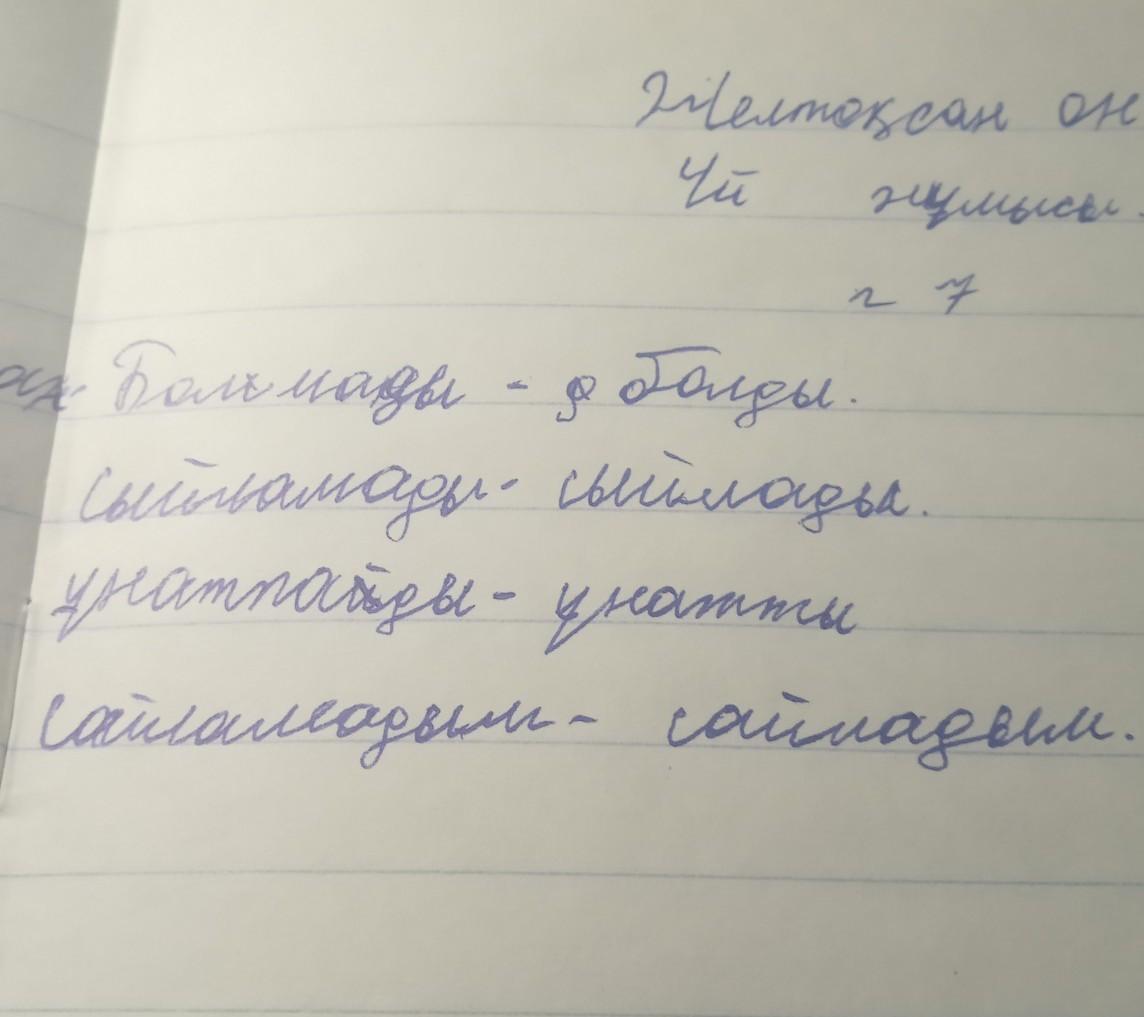 Желтоқсан он
Үй жұмысы.
г 7
Болмады - болды.
сыйламады - сыйлады.
ұнатпайды - ұнатты
сайламадым - сайладым.